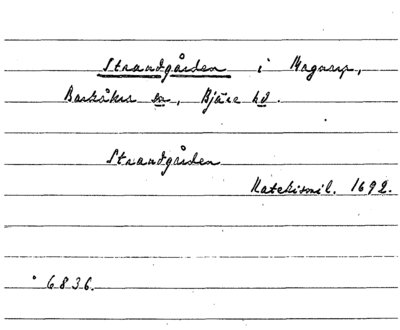 Strandgården i Magnarp,
Barkåkra sn, Bjäre hd.
Strandgården
Katekismil. 1692.
6836.